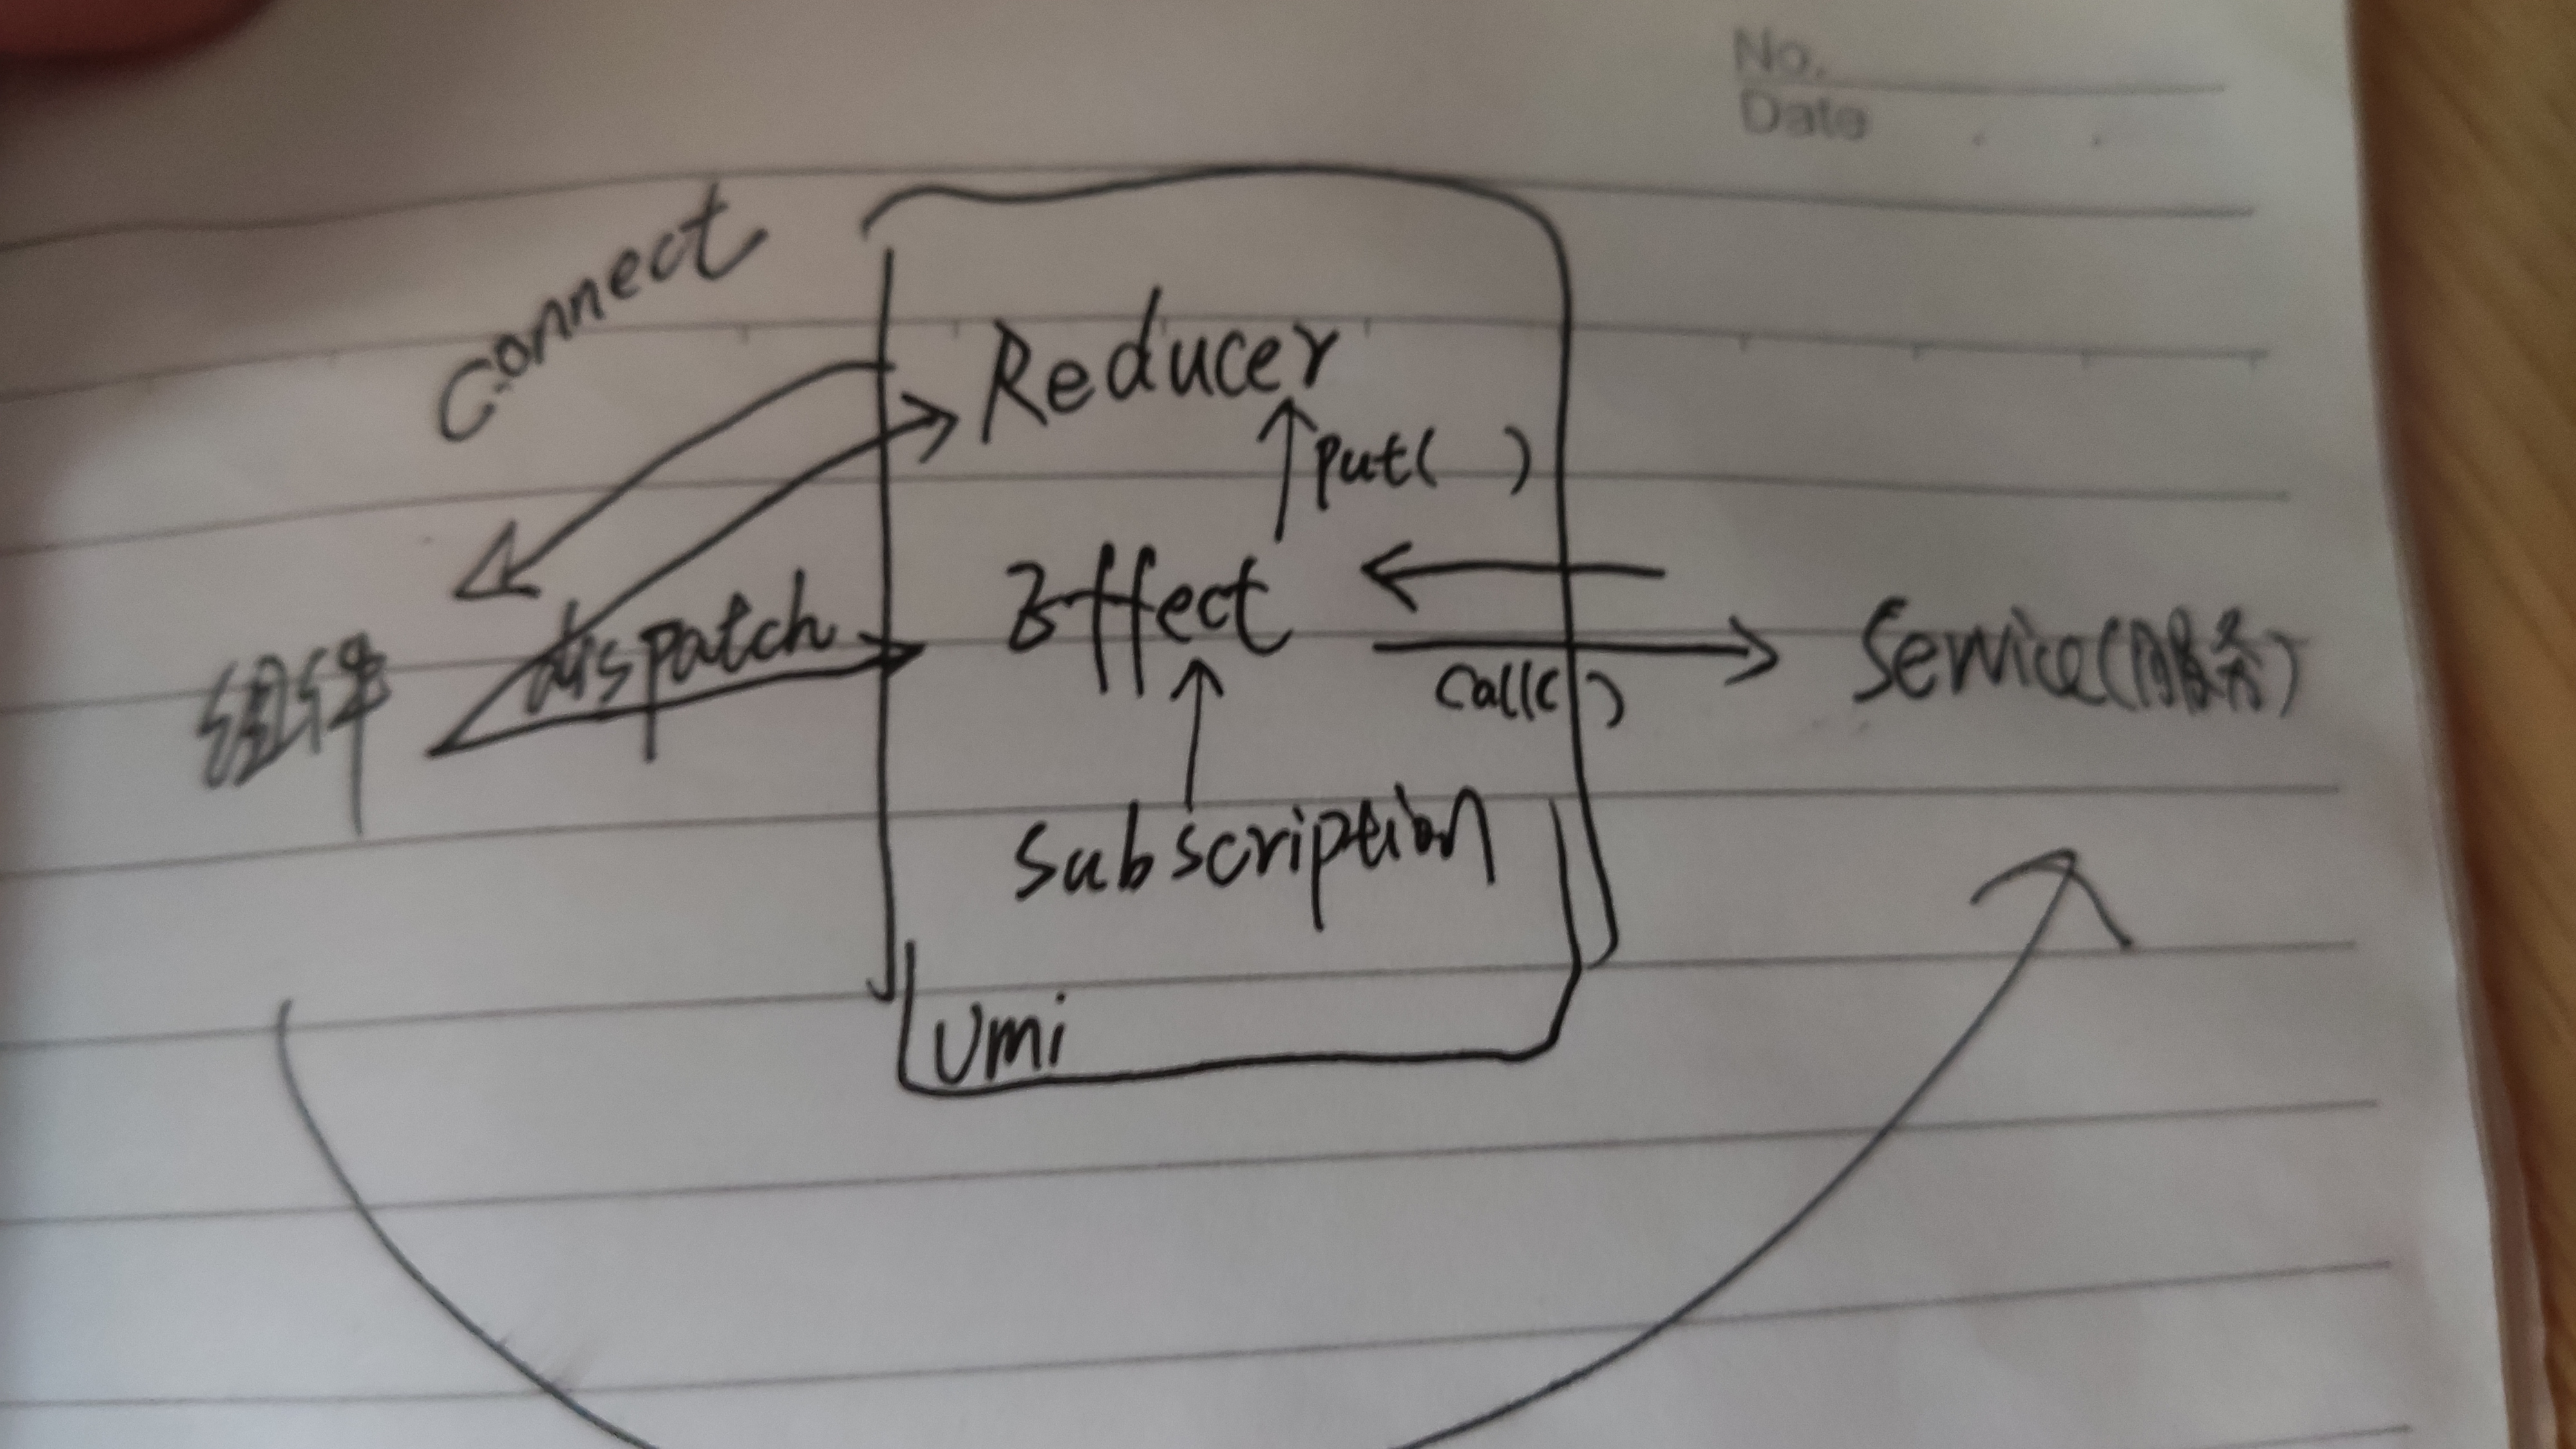 No.
Date
Connect
Reducer
put( )
Effect
dispatch
组件
call( )
Service(服务)
Subscription
Umi